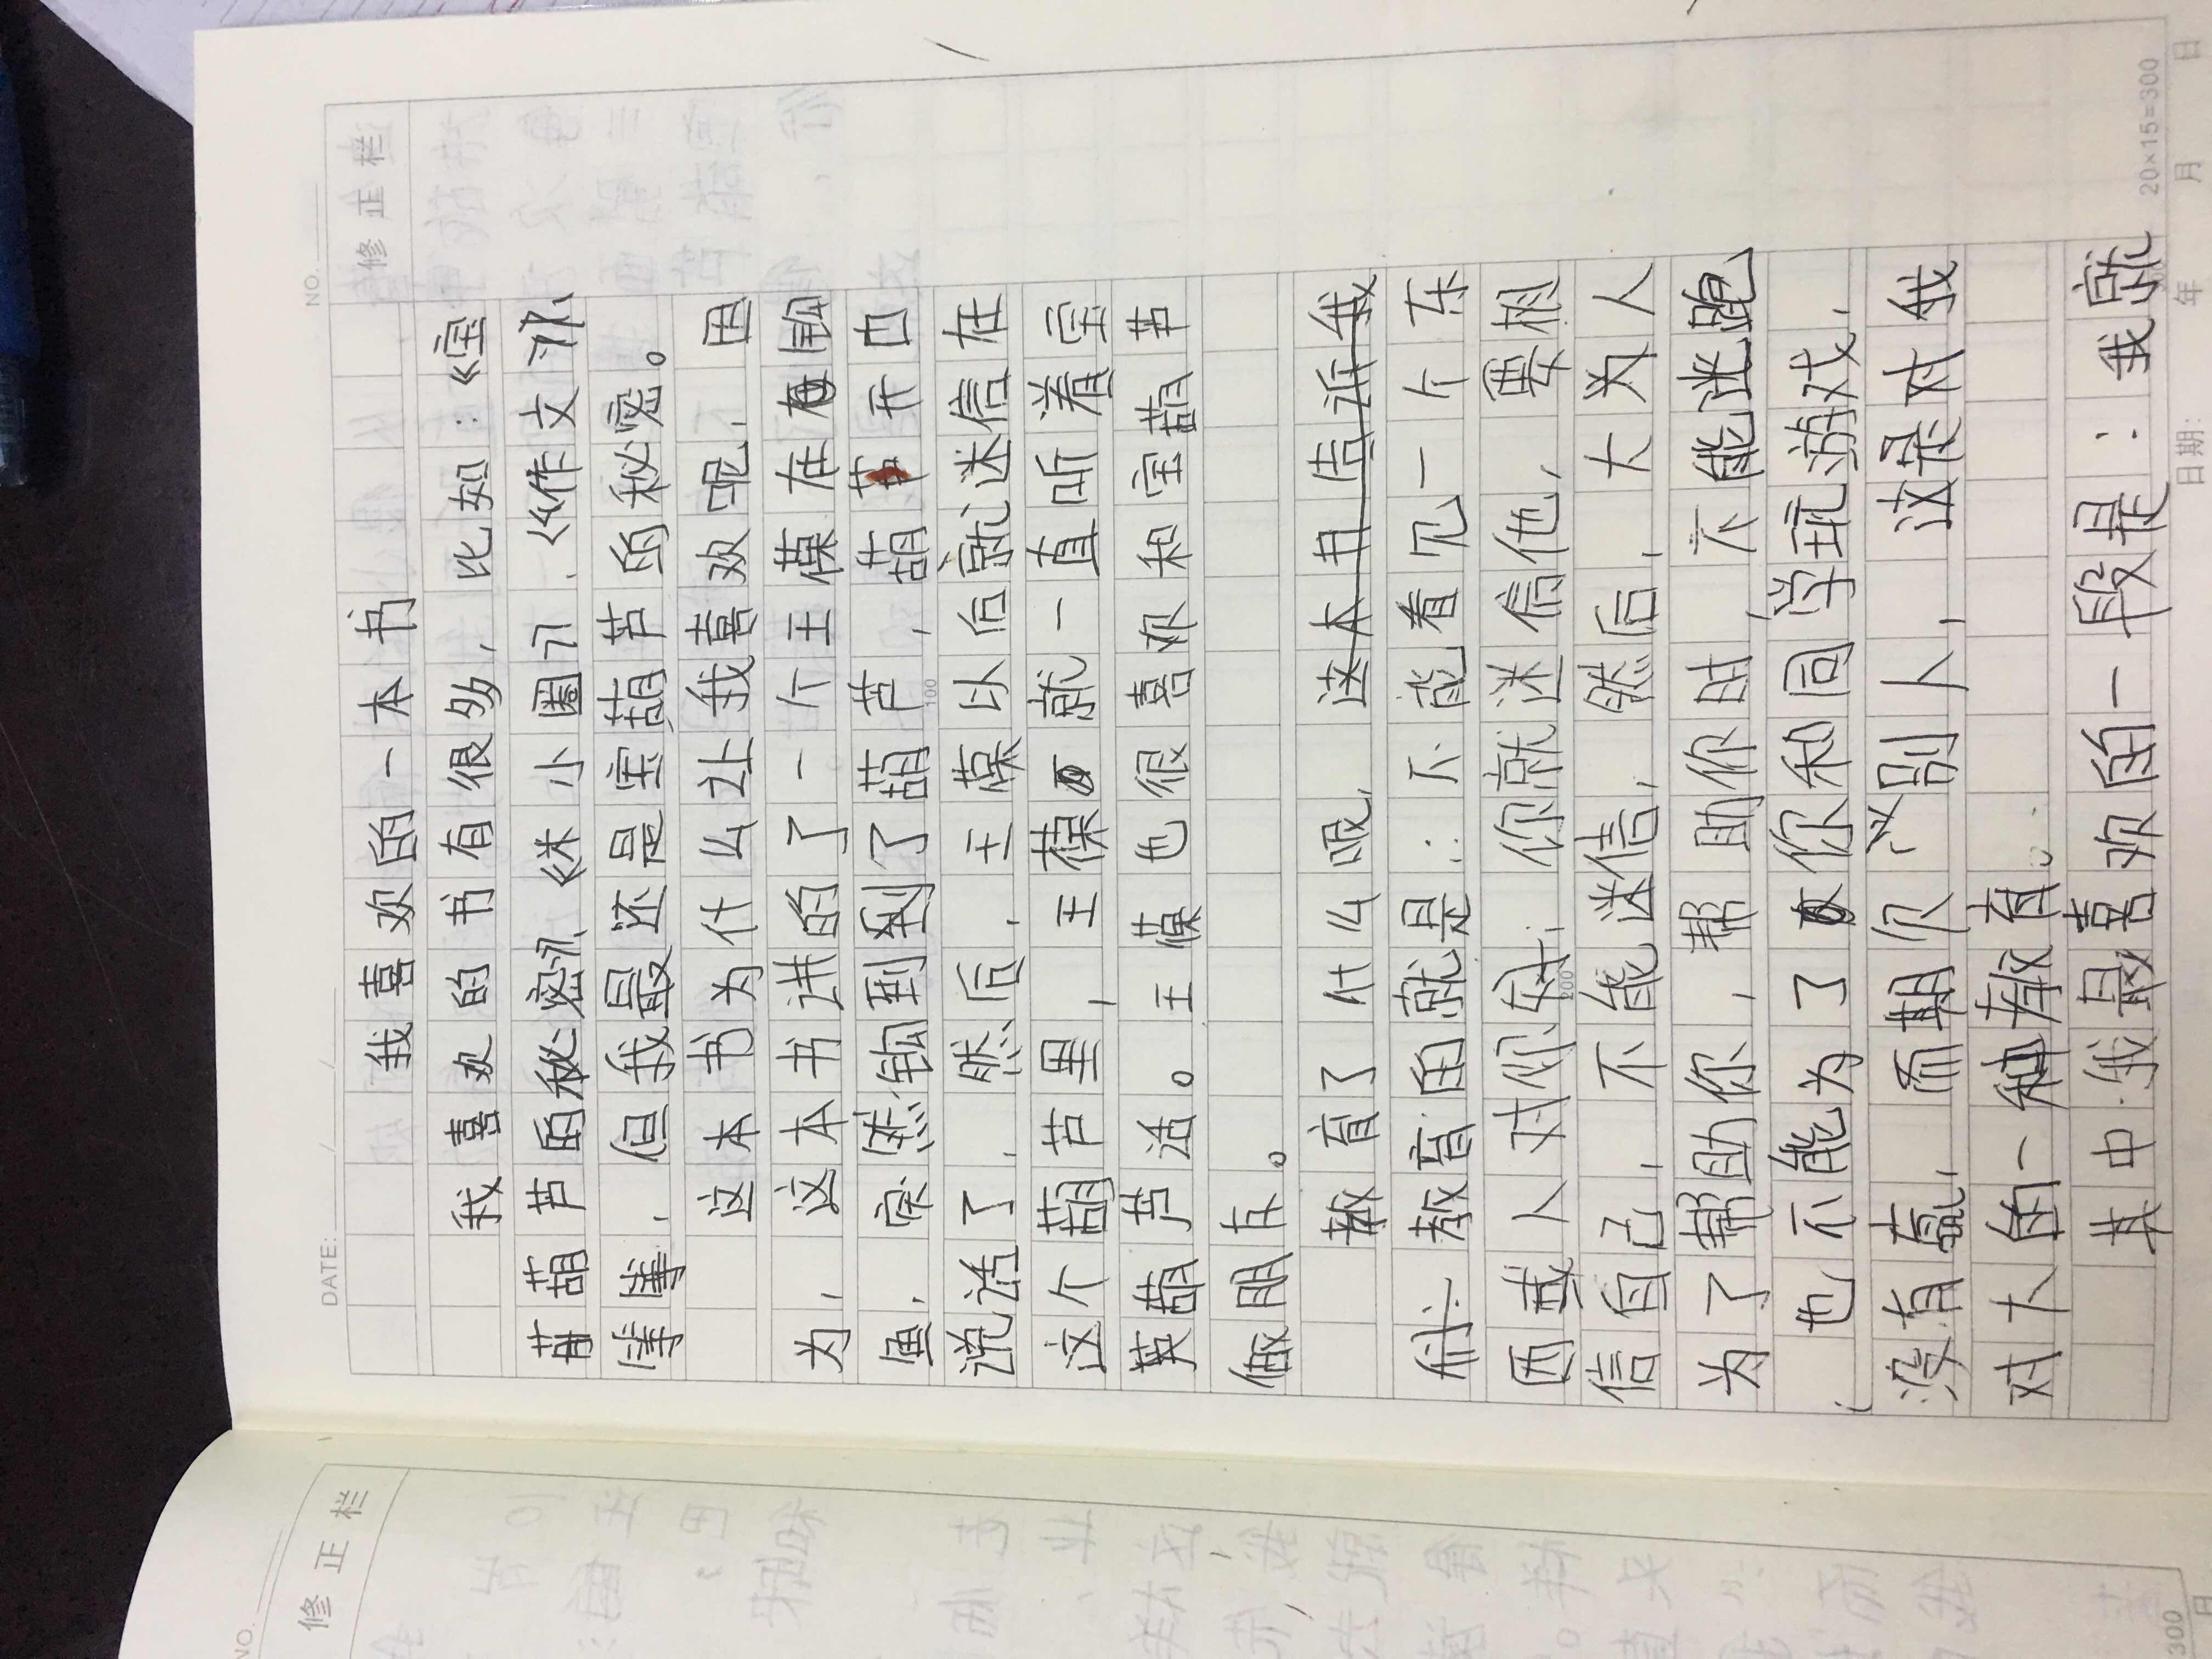 DATE: / /
NO.
修正栏
我喜欢的一本书
我喜欢的书有很多，比如：《宝
葫芦的秘密》、《米小圈》、《作文》
但我最还是宝葫芦的秘密。
这本书为什么让我喜欢呢，因
为，这本书讲的了一个王葆在钓
鱼，突然钓到了葫芦，葫芦开口
说话了，然后，王葆以后就迷信在
这个葫芦里，王葆就一直听着宝
葫芦话。王葆也很喜欢和宝葫芦
做朋友。
教育了什么呢，这本书告诉我
们：教育的就是：不能看见一个东
西或人对你好，你就迷信他，要相
信自己，不能迷信，然后，大为人
为了帮助你，帮助你时，不能逃跑
也不能为了你和同学玩游戏，
没有赢，而期负别人，这是对我
对大的一种教育。
其中我最喜欢的一段是：我就
100
200
20×15=300
日期： 年 月 日
NO.
修正栏
300
日